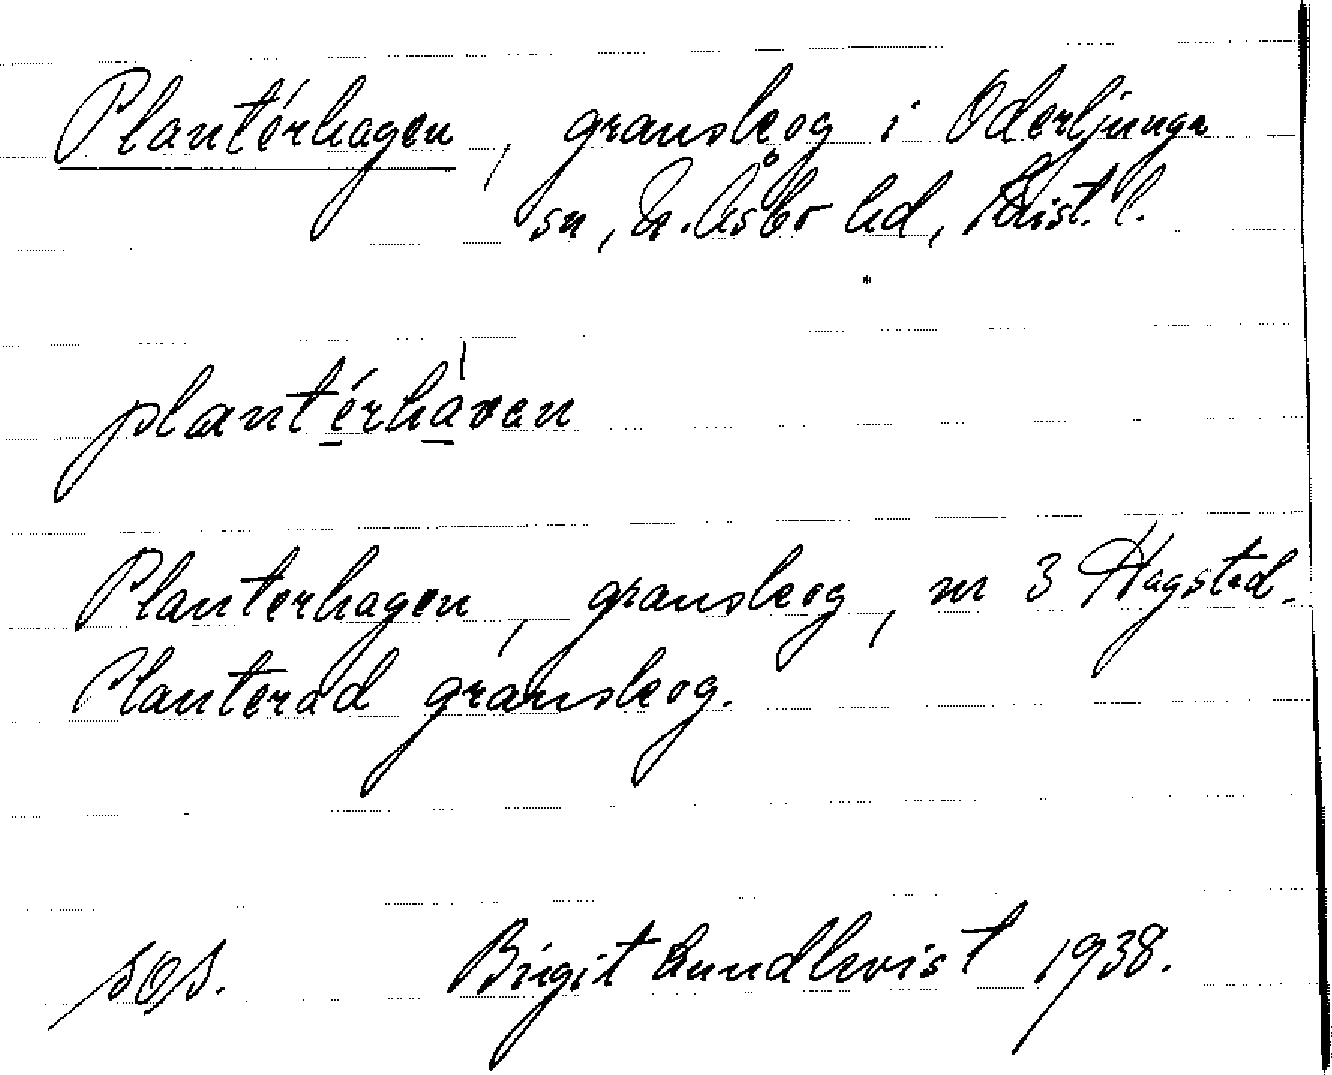 Plantérhagen, granskog i Oderljunga
sn, N. Åsbo hd, Krist. l.
plantérhàven
Planterhagen, granskog, nr 3 Hagstad.
Planterad granskog.
sos. Birgit Lundkvist 1938.